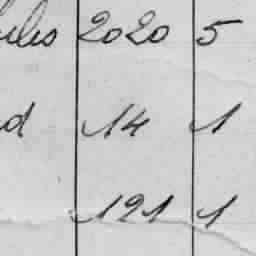 2020 5
d 14 1
191 1